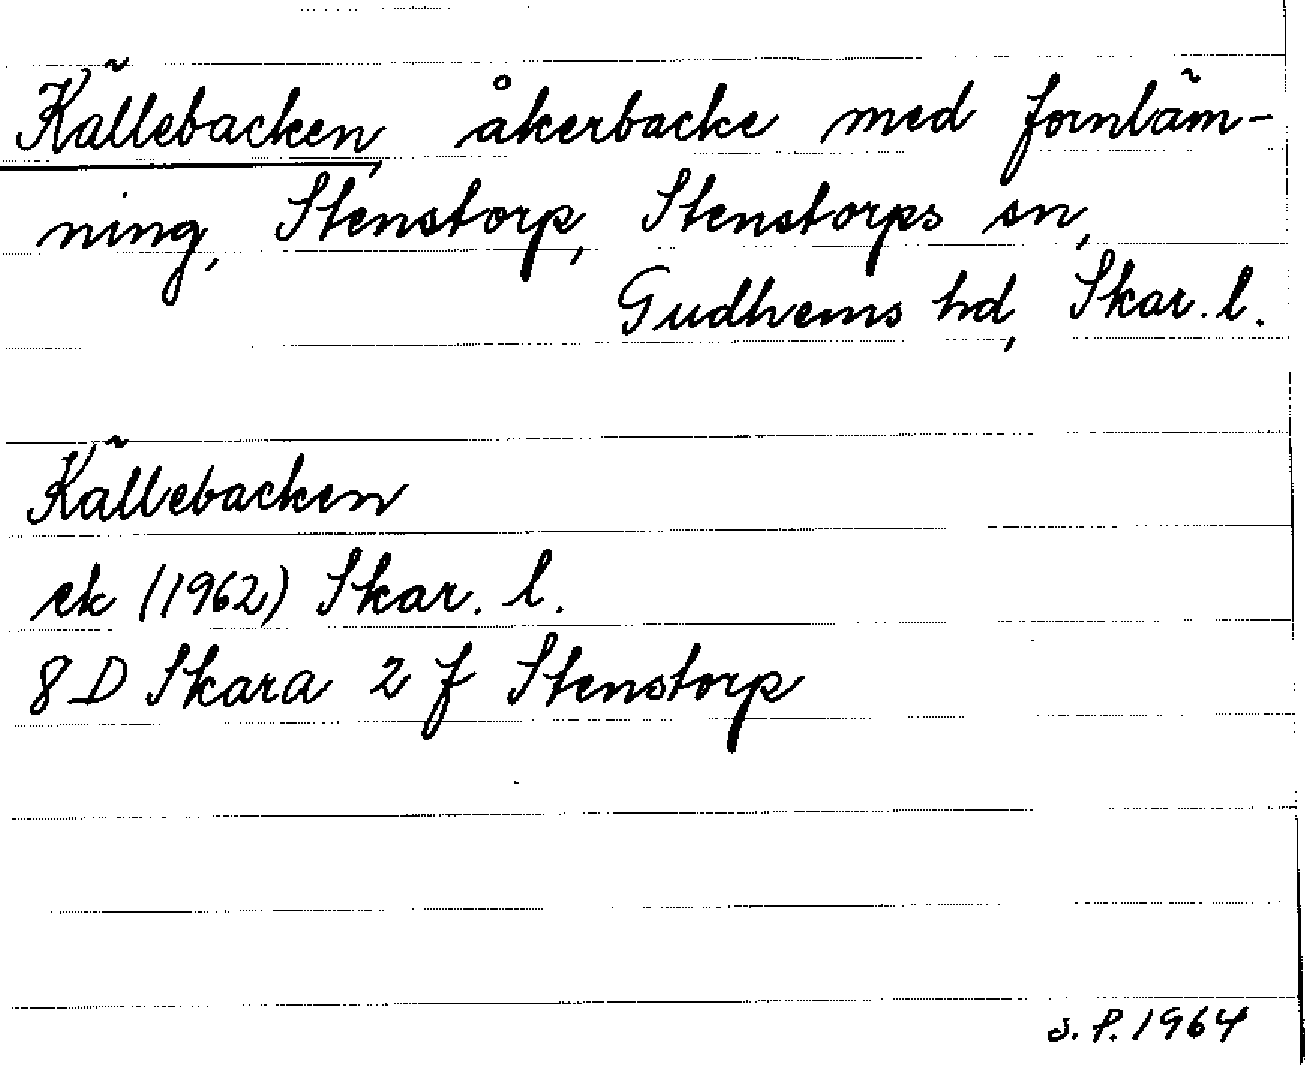 Källebacken, åkerbacke med fornläm-
ning, Stenstorp, Stenstorps sn,
Gudhems hd, Skar. l.
Källebacken
ek (1962) Skar. l.
8 D Skara 2 f Stenstorp
S. P. 1964